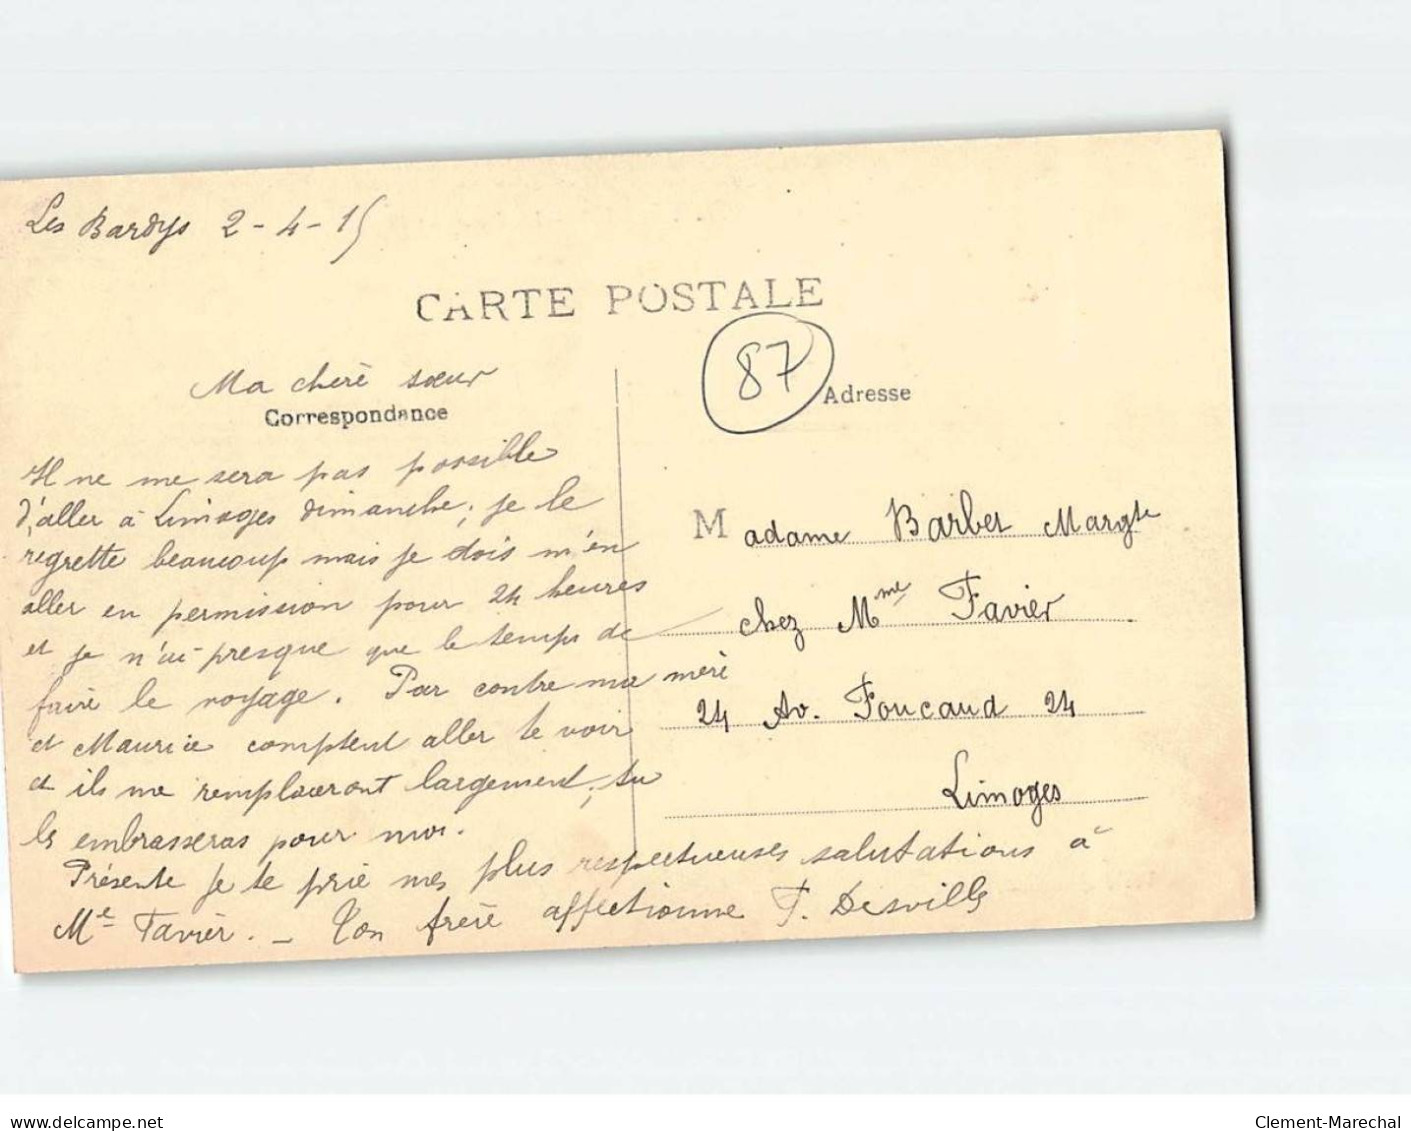 Les Bardys 2-4-15
CARTE POSTALE
Ma chère sœur
Correspondance
Il ne me sera pas possible
d'aller à Limoges dimanche; je le
regrette beaucoup mais je dois m'en
aller en permission pour 24 heures
et je n'ai presque que le temps de
faire le voyage. Par contre ma mère
et Maurice comptent aller te voir
et ils me remplaceront largement; tu
les embrasseras pour moi.
Présente je te prie mes plus respectueuses salutations à
Me Favier. _ Ton frère affectionné F. Desvilles
87
Adresse
Madame Barbet Margte
chez Mme Favier
24 Av. Foucaud 24
Limoges
delcampe.net
Clement-Marechal